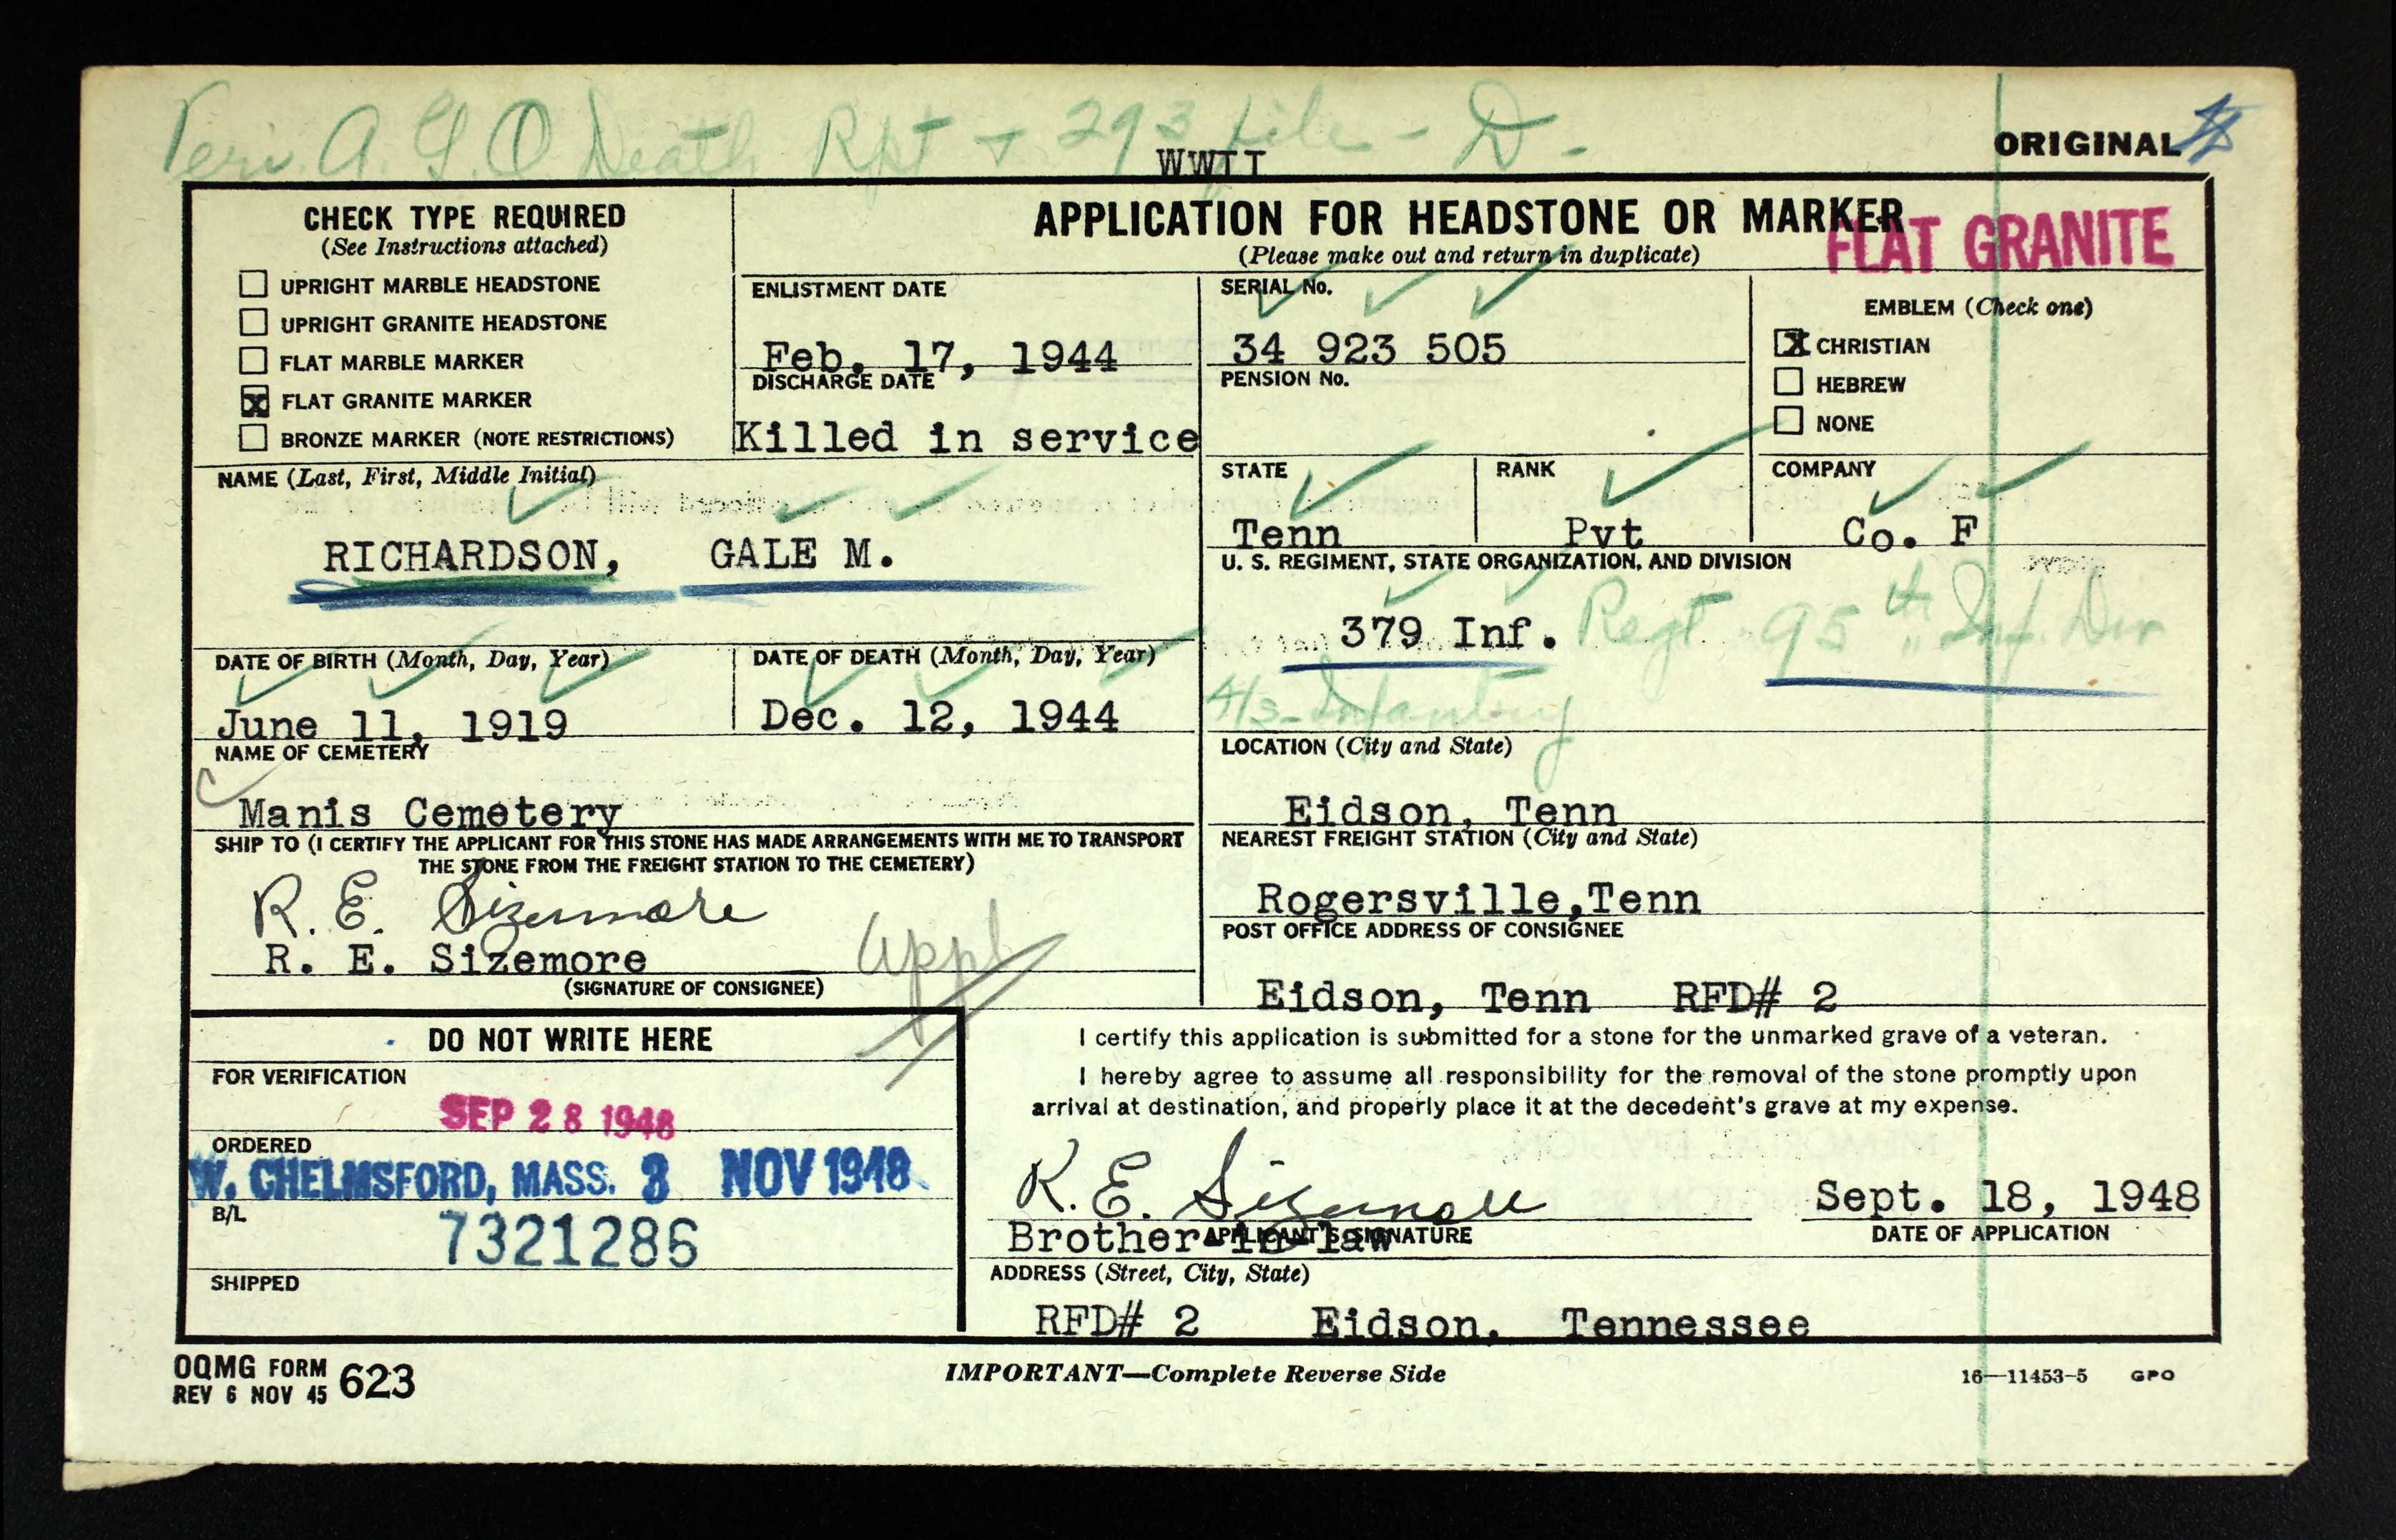 Veri. A. G. O Death Rpt + 293 file - D.
WWII
ORIGINAL
CHECK TYPE REQUIRED
(See Instructions attached)
UPRIGHT MARBLE HEADSTONE
UPRIGHT GRANITE HEADSTONE
FLAT MARBLE MARKER
X FLAT GRANITE MARKER
BRONZE MARKER (NOTE RESTRICTIONS)
APPLICATION FOR HEADSTONE OR MARKER
(Please make out and return in duplicate)
FLAT GRANITE
ENLISTMENT DATE
Feb. 17, 1944
DISCHARGE DATE
Killed in service
SERIAL No.
34 923 505
PENSION No.
EMBLEM (Check one)
X CHRISTIAN
HEBREW
NONE
NAME (Last, First, Middle Initial)
RICHARDSON, GALE M.
STATE
Tenn
RANK
Pvt
COMPANY
Co. F
U. S. REGIMENT, STATE ORGANIZATION, AND DIVISION
379 Inf. Regt 95th Inf Div
A/S-Infantry
DATE OF BIRTH (Month, Day, Year)
June 11, 1919
DATE OF DEATH (Month, Day, Year)
Dec. 12, 1944
NAME OF CEMETERY
Manis Cemetery
LOCATION (City and State)
Eidson, Tenn
SHIP TO (I CERTIFY THE APPLICANT FOR THIS STONE HAS MADE ARRANGEMENTS WITH ME TO TRANSPORT
THE STONE FROM THE FREIGHT STATION TO THE CEMETERY)
R. E. Sizemore
R. E. Sizemore
appl
(SIGNATURE OF CONSIGNEE)
NEAREST FREIGHT STATION (City and State)
Rogersville,Tenn
POST OFFICE ADDRESS OF CONSIGNEE
Eidson, Tenn RFD# 2
DO NOT WRITE HERE
FOR VERIFICATION
SEP 28 1948
ORDERED
W. CHELMSFORD, MASS. 3 NOV 1948
B/L
7321286
SHIPPED
I certify this application is submitted for a stone for the unmarked grave of a veteran.
I hereby agree to assume all responsibility for the removal of the stone promptly upon
arrival at destination, and properly place it at the decedent's grave at my expense.
R. E. Sizemore
Sept. 18, 1948
Brother-in-law
APPLICANT'S SIGNATURE
DATE OF APPLICATION
ADDRESS (Street, City, State)
RFD# 2 Eidson, Tennessee
OQMG FORM 623
REV 6 NOV 45
IMPORTANT—Complete Reverse Side
16—11453-5 GPO